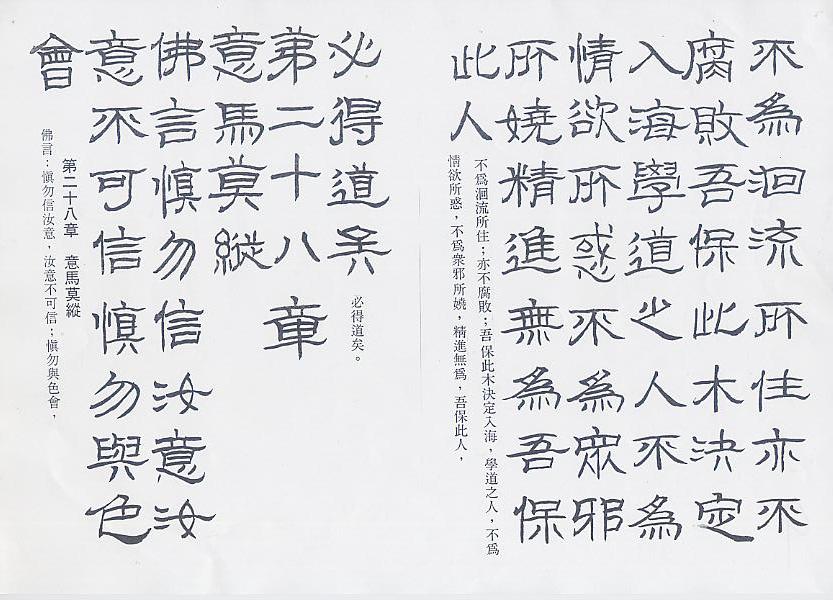 不為洄流所住亦不
腐敗吾保此木決定
入海學道之人不為
情欲所惑不為眾邪
所嬈精進無為吾保
此人
不爲洄流所住；亦不腐敗；吾保此木決定入海，學道之人，不爲
情欲所惑，不爲衆邪所嬈，精進無爲，吾保此人，
必得道矣
必得道矣。
第二十八章
意馬莫縱
佛言慎勿信汝意汝
意不可信慎勿與色
會
第二十八章　意馬莫縱
佛言：愼勿信汝意，汝意不可信；愼勿與色會，